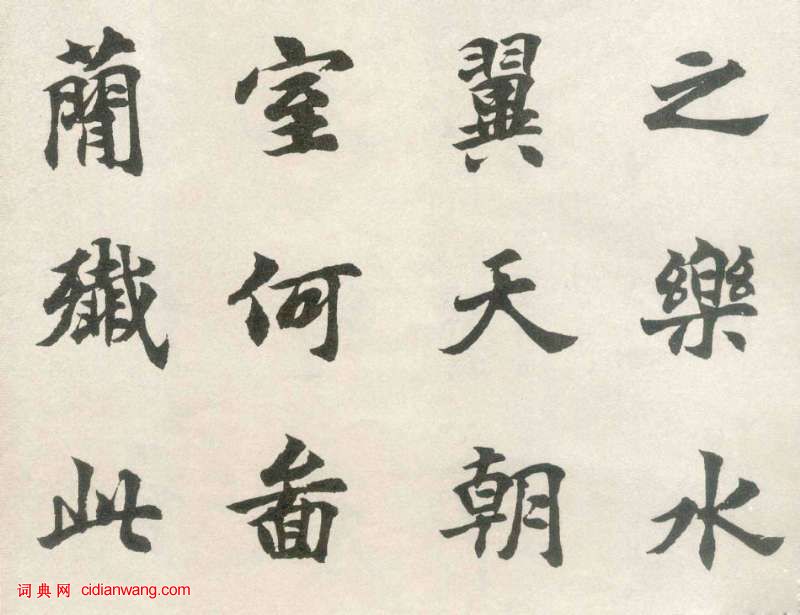 之樂水
翼天朝
室何啚
蕑殲此
词典网 cidianwang.com